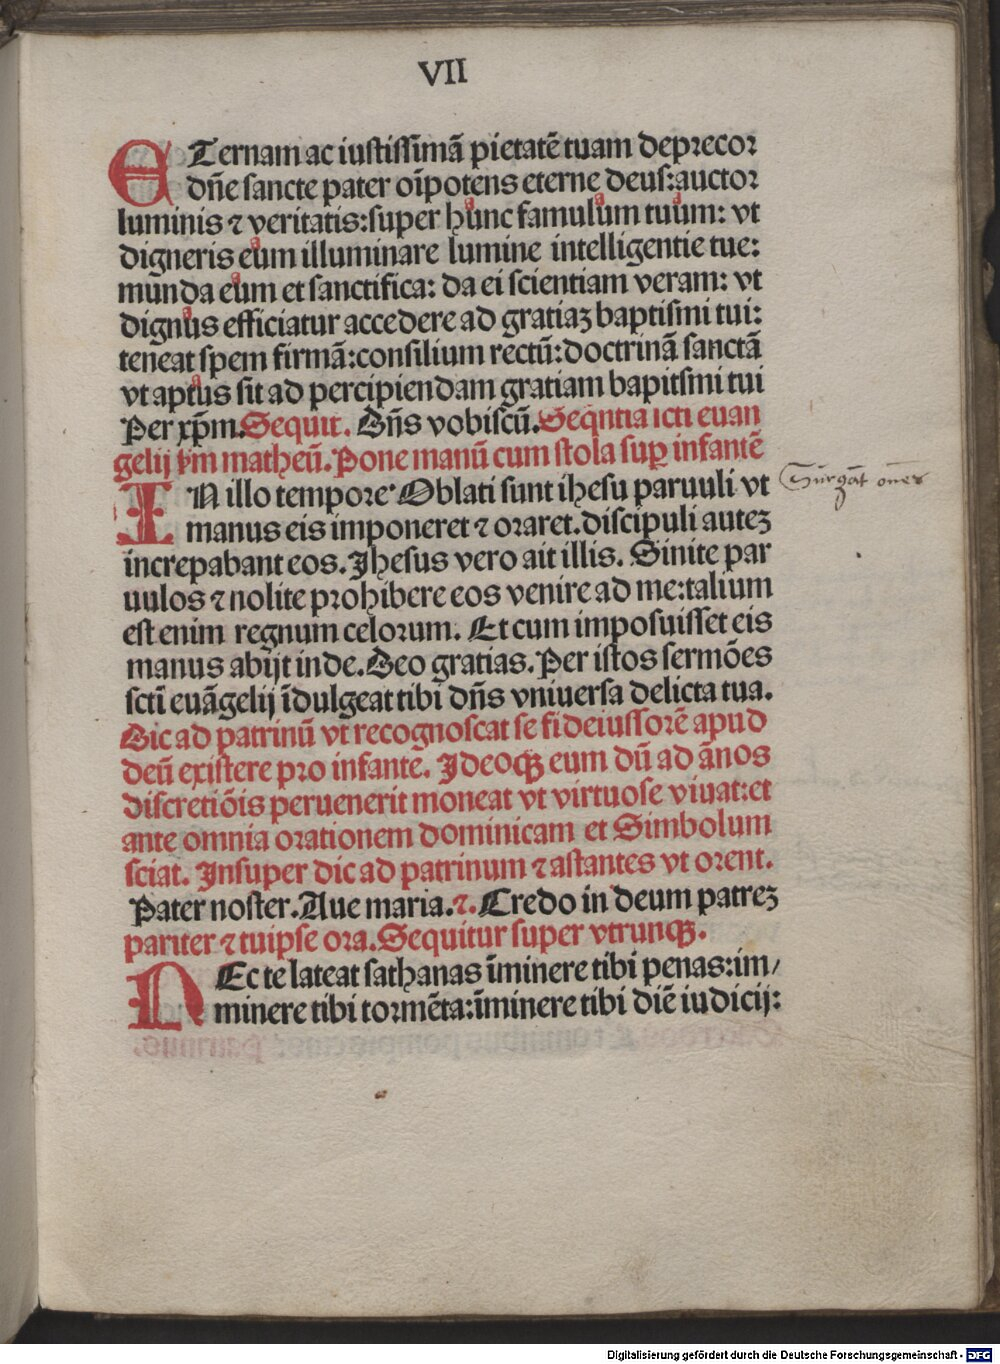 VII
ETernam ac iustissimā pietatē tuam deprecor
dn̄e sancte pater oīpotens eterne deus: auctor
luminis ⁊ veritatis: super hunc famulum tuum: vt
digneris eum illuminare lumine intelligentie tue:
munda eum et sanctifica: da ei scientiam veram: vt
dignus efficiatur accedere ad gratiaꝫ baptismi tui:
teneat spem firmā: consilium rectū: doctrinā sanctā
vt aptus sit ad percipiendam gratiam bapitsmi tui
Per xp̄m. Sequit᷑. Dn̄s vobiscū. Seqn̄tia scti euan
gelij ẜm matheū. Pone manū cum stola suꝑ infantē
IN illo tempore Oblati sunt ihesu paruuli vt
Surgāt om̄es
manus eis imponeret ⁊ oraret. discipuli auteꝫ
increpabant eos. Jhesus vero ait illis. Sinite par
uulos ⁊ nolite prohibere eos venire ad me: talium
est enim regnum celorum. Et cum imposuisset eis
manus abijt inde. Deo gratias. Per istos sermōes
scti euāgelij īdulgeat tibi dn̄s vniuersa delicta tua.
Dic ad patrinū vt recognoscat se fideiussorē apud
deū existere pro infante. Jdeoqꝫ eum dū ad ānos
discretiōis peruenerit moneat vt virtuose viuat: et
ante omnia orationem dominicam et Simbolum
sciat. Jnsuper dic ad patrinum ⁊ astantes vt orent.
Pater noster. Aue maria. ⁊. Credo in deum patreꝫ
pariter ⁊ tuipse ora. Sequitur super vtrunqꝫ.
NEc te lateat sathanas īminere tibi penas: im/
minere tibi tormēta: īminere tibi diē iudicij:
Digitalisierung gefördert durch die Deutsche Forschungsgemeinschaft - DFG